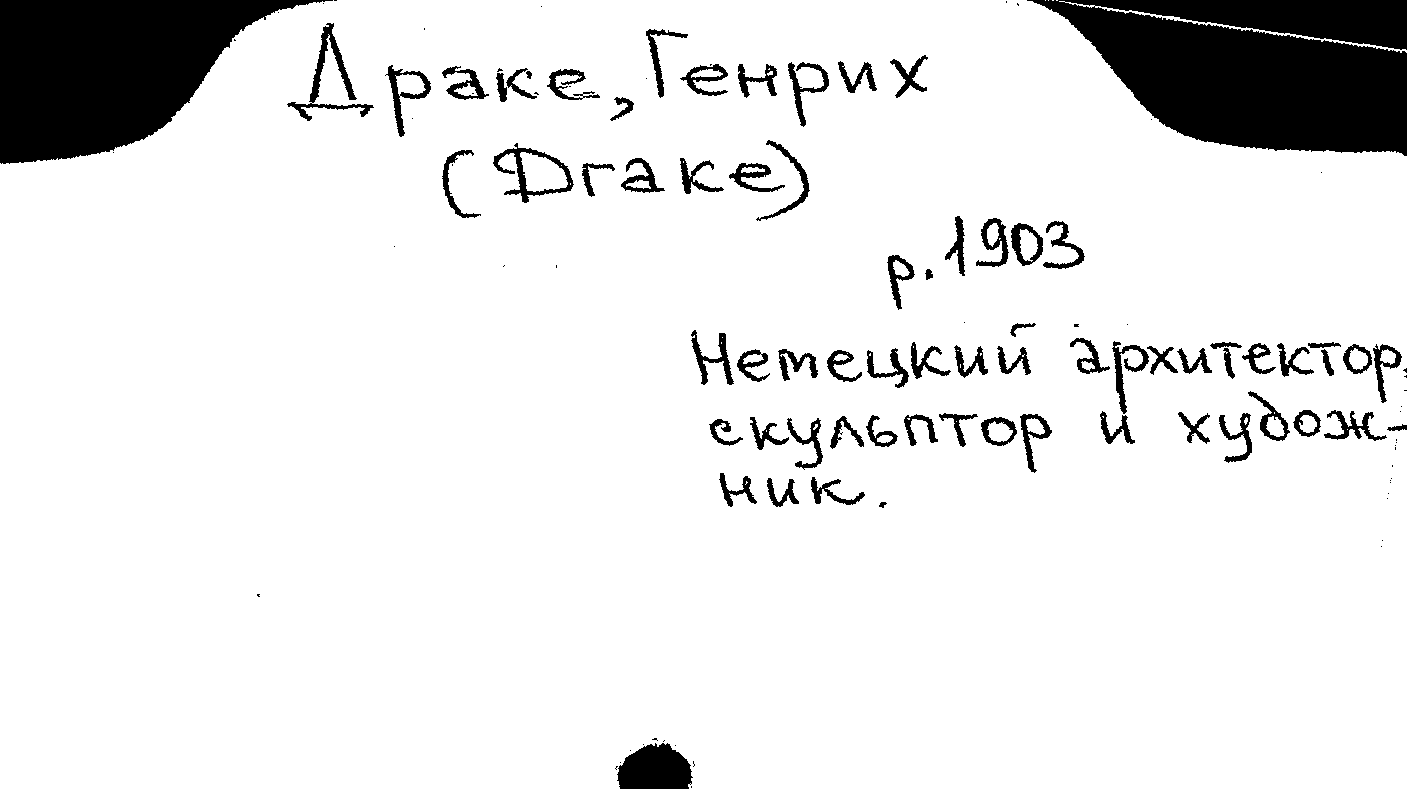 Драке, Генрих
(Drake)
р. 1903
Немецкий архитектор,
скульптор и худож-
ник.